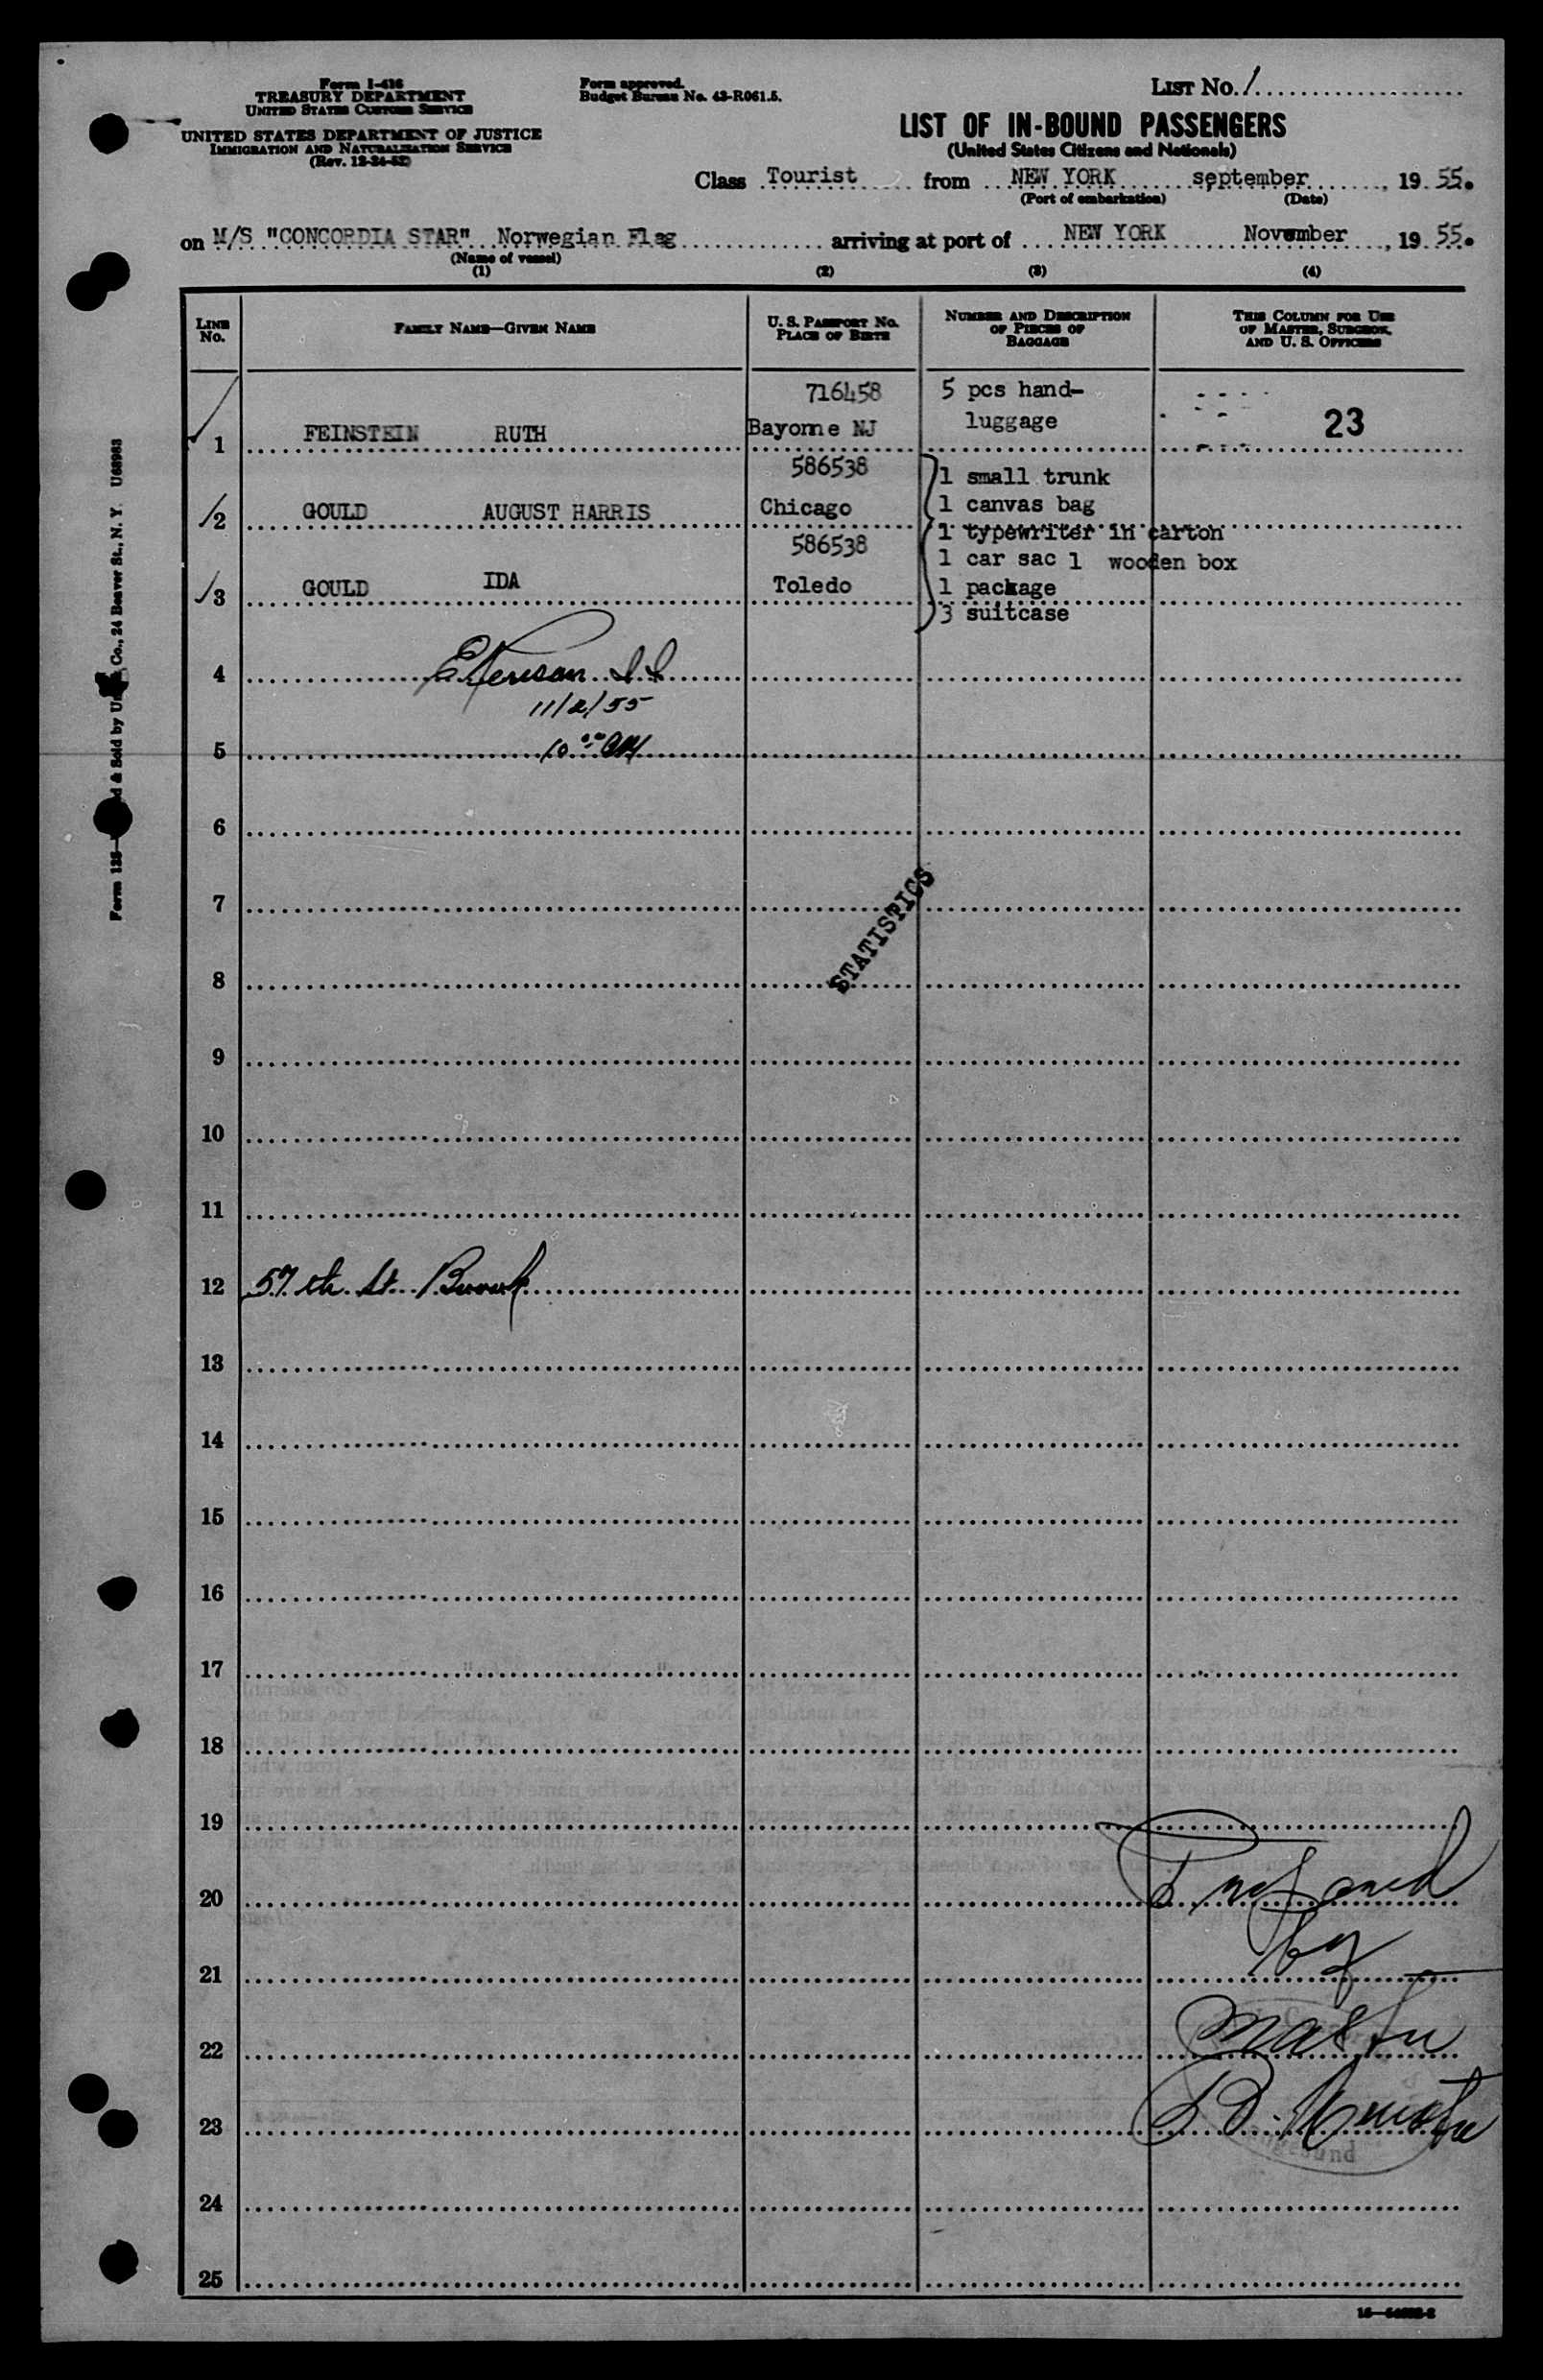 Form I-416
TREASURY DEPARTMENT
UNITED STATES CUSTOMS SERVICE
UNITED STATES DEPARTMENT OF JUSTICE
IMMIGRATION AND NATURALIZATION SERVICE
(Rev. 12-24-52)
Form approved.
Budget Bureau No. 43-R061.5.
LIST No. 1
LIST OF IN-BOUND PASSENGERS
(United States Citizens and Nationals)
Class Tourist from NEW YORK september, 19 55.
(Port of embarkation) (Date)
on M/S "CONCORDIA STAR" Norwegian Flag arriving at port of NEW YORK November, 19 55.
(Name of vessel)
(1) (2) (3) (4)
LINE No.
FAMILY NAME—GIVEN NAME
U. S. PASSPORT No.
PLACE OF BIRTH
NUMBER AND DESCRIPTION
OF PIECES OF
BAGGAGE
THIS COLUMN FOR USE
OF MASTER, SURGEON,
AND U. S. OFFICERS
716458 5 pcs hand-
luggage 23
1 FEINSTEIN RUTH Bayome NJ
586538 1 small trunk
2 GOULD AUGUST HARRIS Chicago 1 canvas bag
1 typewriter in carton
586538 1 car sac 1 wooden box
3 GOULD IDA Toledo 1 package
3 suitcase
4
11/2/55
5 10:00 AM
6
7
STATISTICS
8
9
10
11
12 57th St.
13
14
15
16
17
18
19
20 Prepared
21 by
22 Master
23
24
25
Co., 24 Beaver St., N. Y. U68983
& Sold by
Form 135—